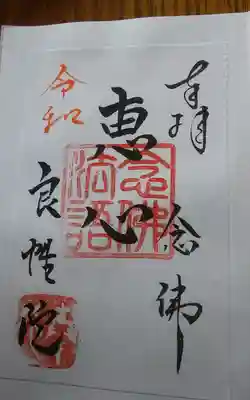 奉拝 念佛
恵心
令和
良性院